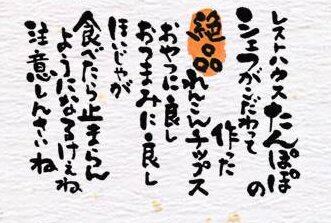 レストハウスたんぽぽの
シェフがこだわって
作った
絶品
れんこんチップス
おやつに良し
おつまみに良し
ほいじゃが
食べだら止まらん
ようになるけぇね
注意しんさいね